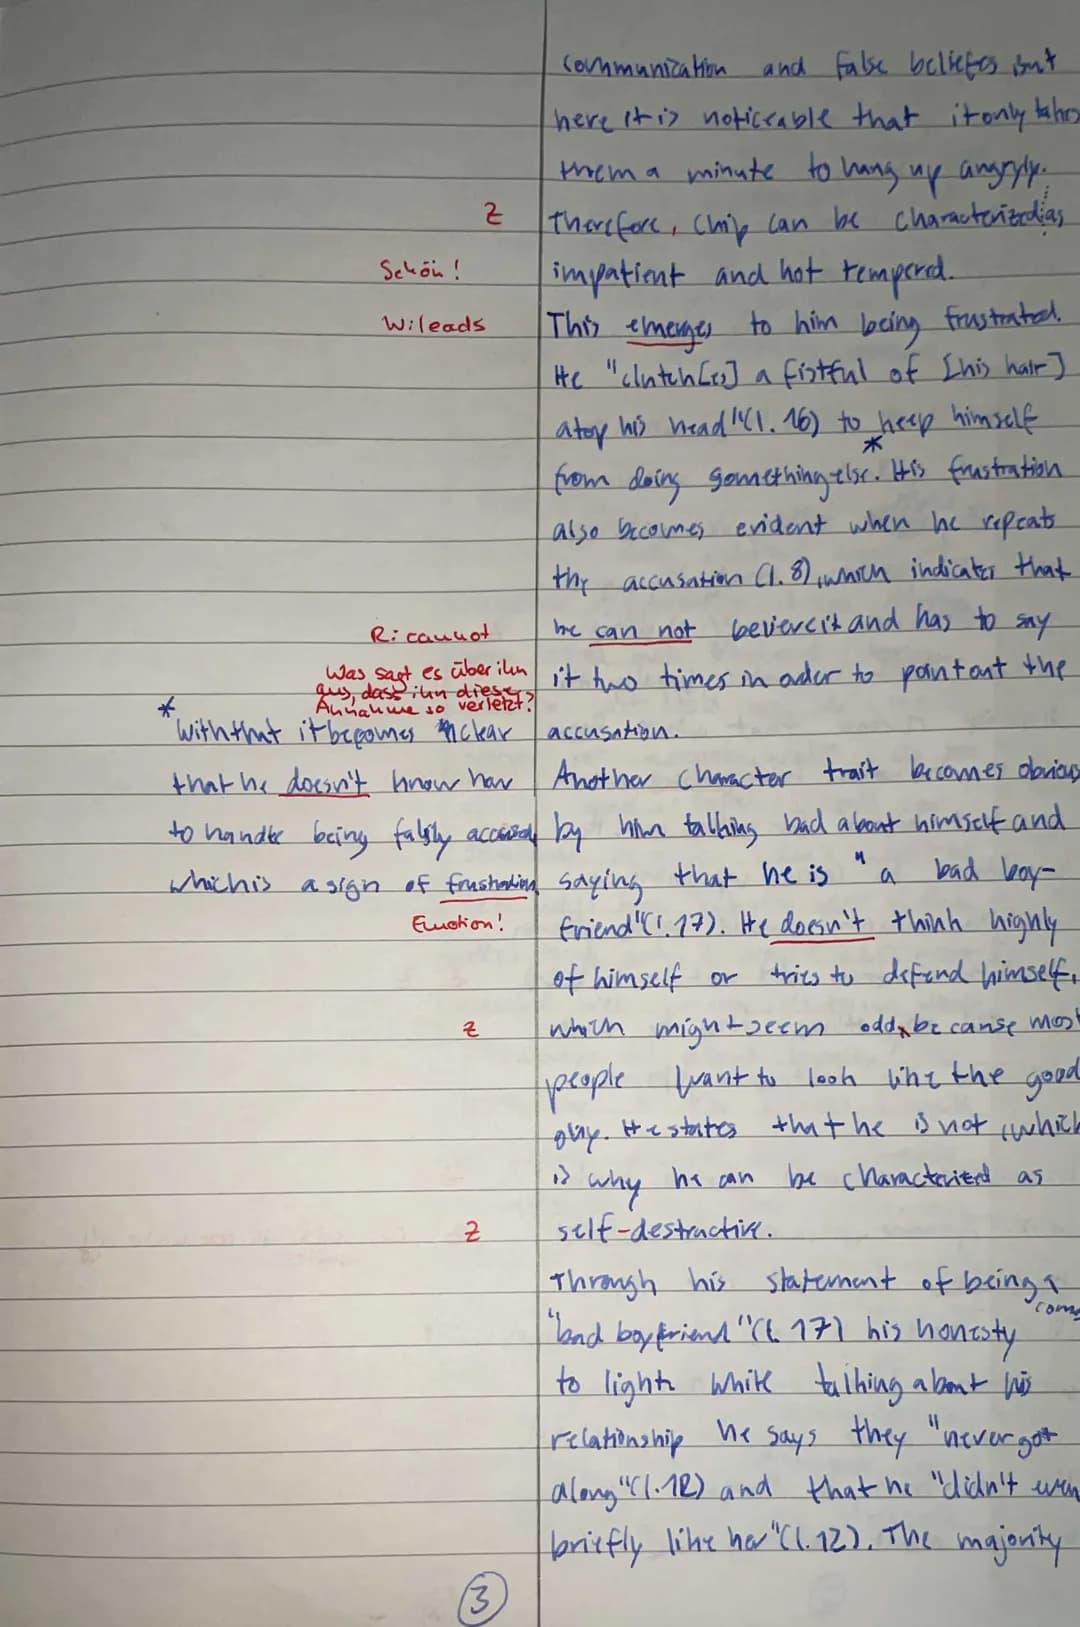 communization and false beliefs but
here it is noticeable that it only takes
them a minute to hang up angryly.
Z
Therefore, Chip can be characterized as
Schön!
impatient and hot tempered.
W: leads
This emerges to him being frustrated.
He "clutch[es] a fistful of [his hair]
atop his head" (l. 16) to keep himself
from doing something else. * His frustration
also becomes evident when he repeats
the accusation (l. 8), which indicates that
R: cannot
he can not believe it and has to say
Was sagt es über ihn
aus, dass ihn diese
Annahme so verletzt?
it two times in order to point out the
accusation.
*
With that it becomes clear
that he doesn't know how
to handle being falsly accused
which is a sign of frustration
Emotion!
Another character trait becomes obvious
by him talking bad about himself and
saying that he is "a bad boy-
friend" (l. 17). He doesn't think highly
of himself or tries to defend himself,
Z
which might seem odd, because most
people want to look like the good
guy. He states that he is not, which
is why he can be characterized as
Z
self-destructive.
Through his statement of being a
"bad boyfriend" (l. 17) his honesty comes
to light. While talking about his
relationship he says they "never got
along" (l. 12) and that he "didn't even
briefly like her" (l. 12). The majority
3